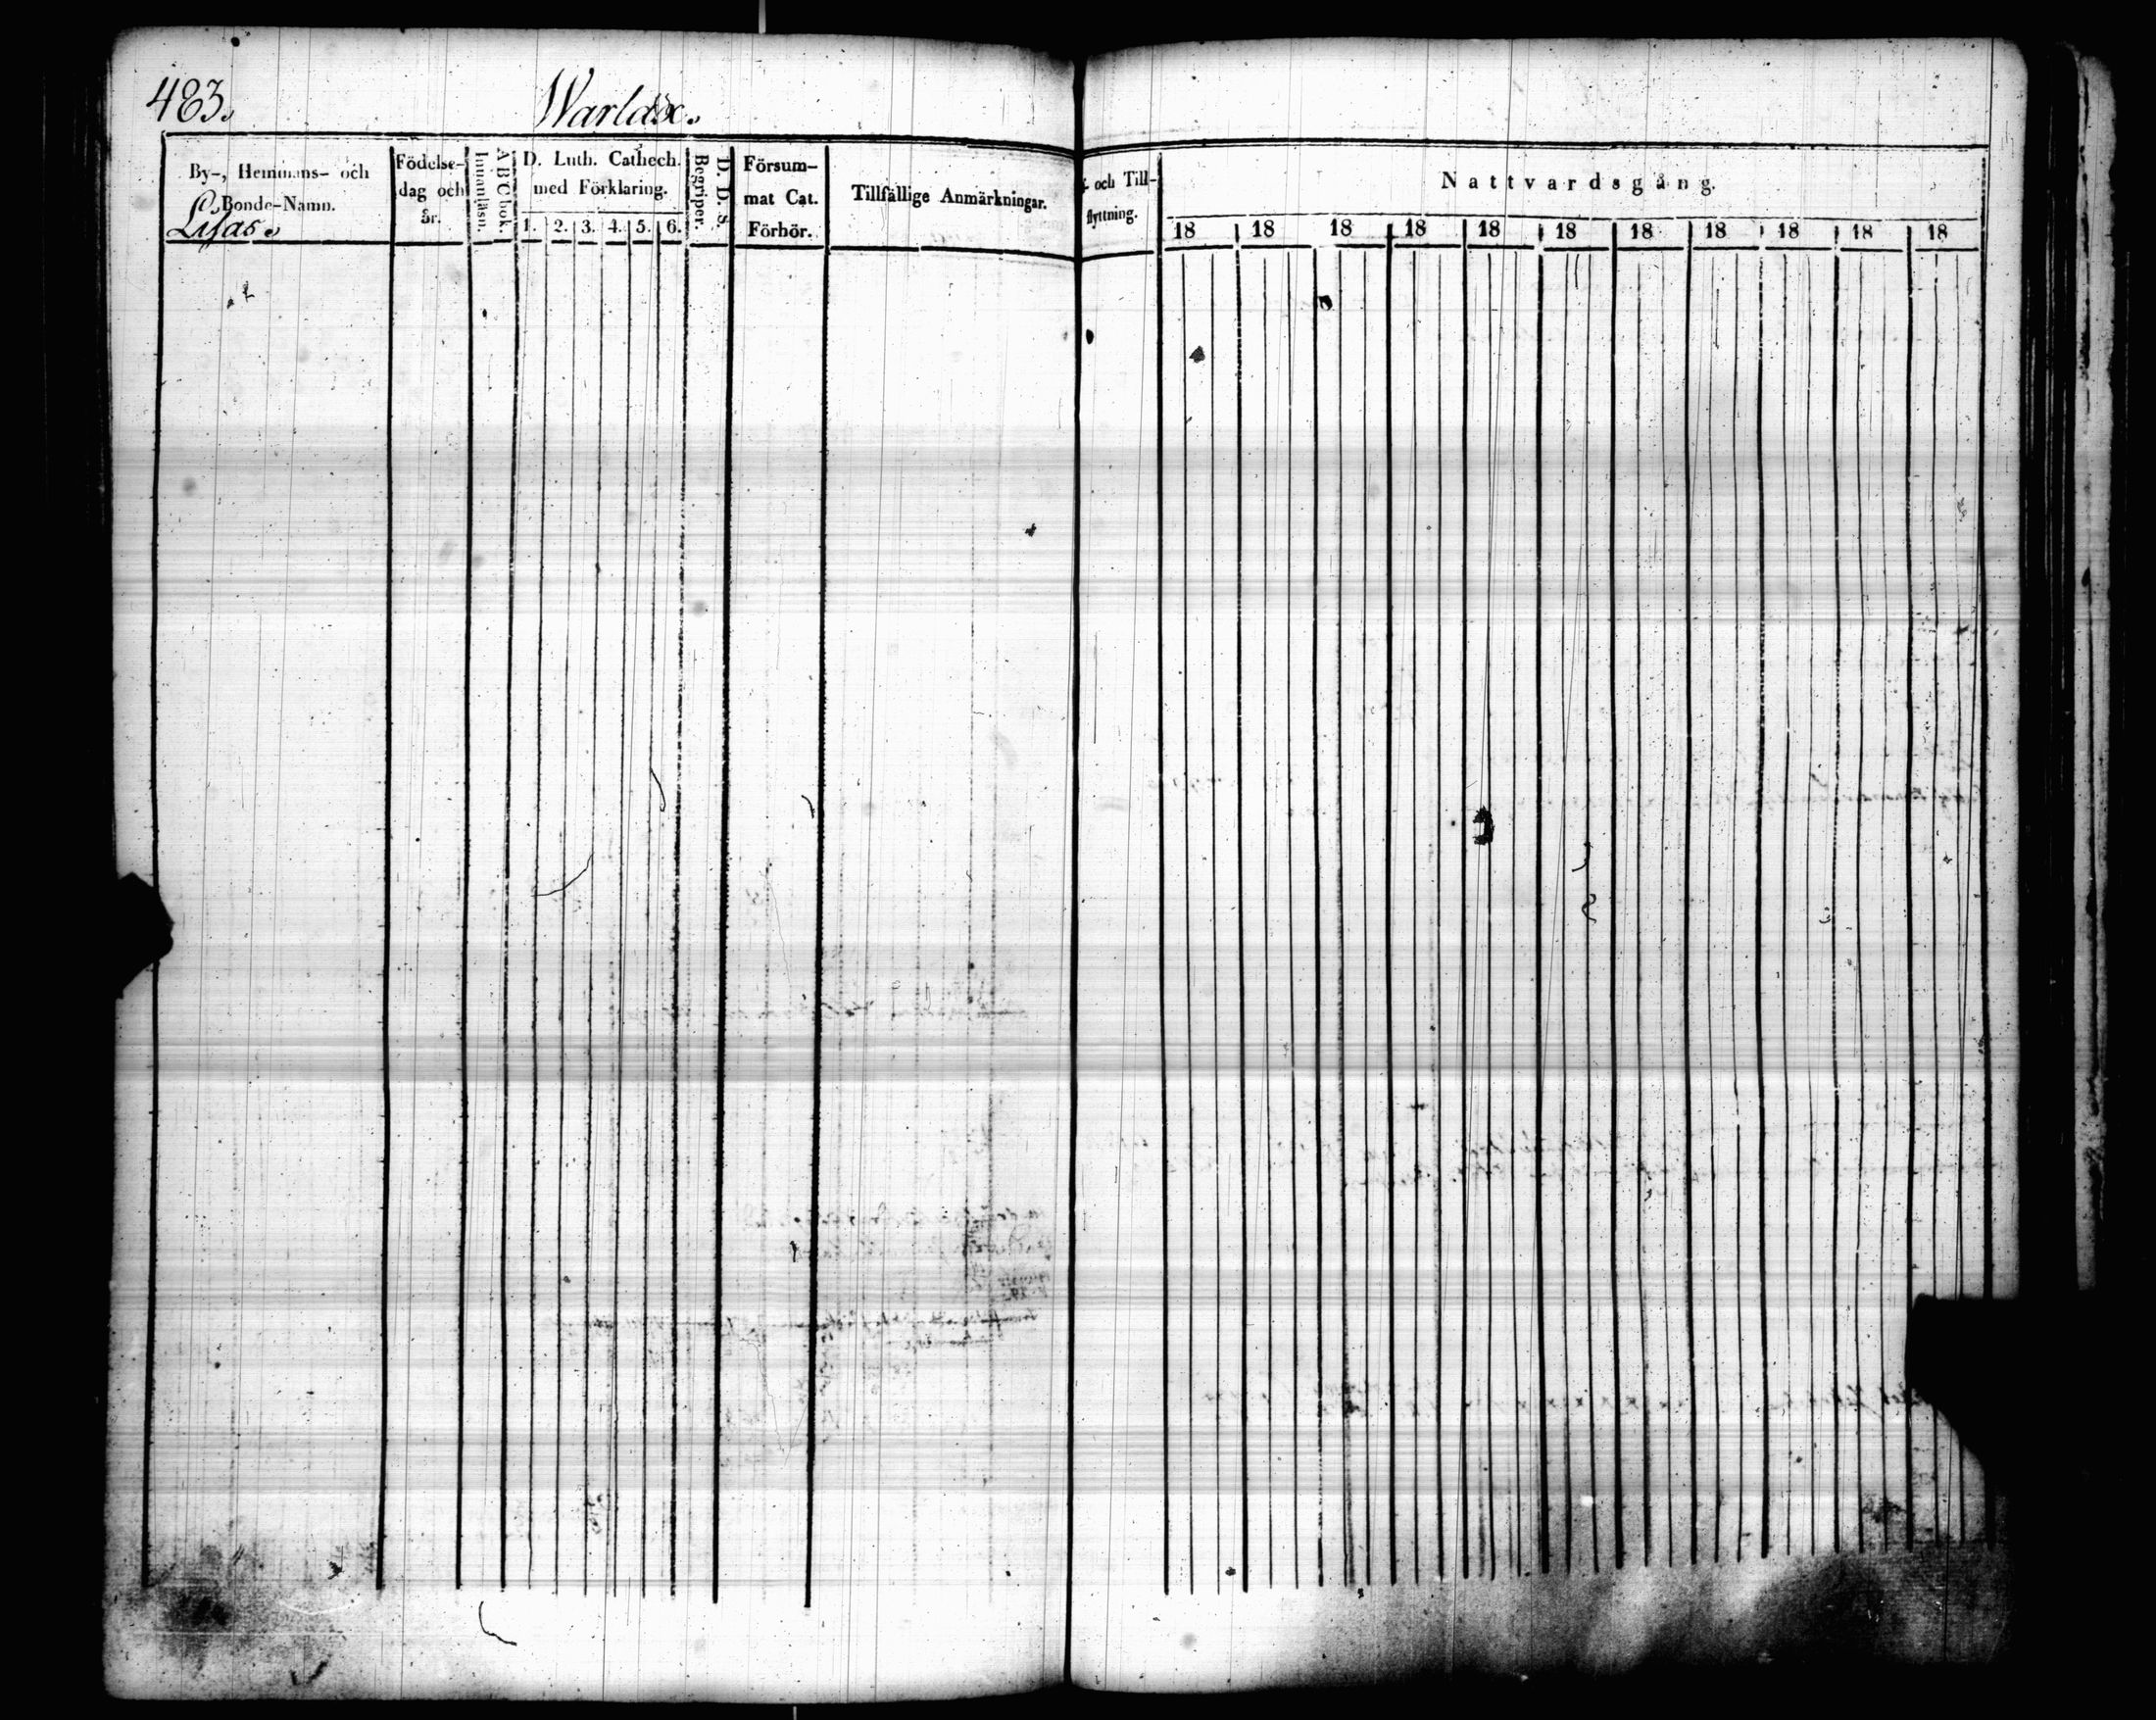 483.
Warlax.
By-, Hemmans- och
Bonde-Namn.
Lisas.
Födelse-
dag och
år.
Innanläsn.
A B C bok.
D. Luth. Cathech.
med Förklaring.
1. 2. 3. 4. 5. 6.
Begriper.
D. D. S.
Försum-
mat Cat.
Förhör.
Tillfällige Anmärkningar.
och Till-
flyttning.
Nattvardsgång.
18 18 18 18 18 18 18 18 18 18 18